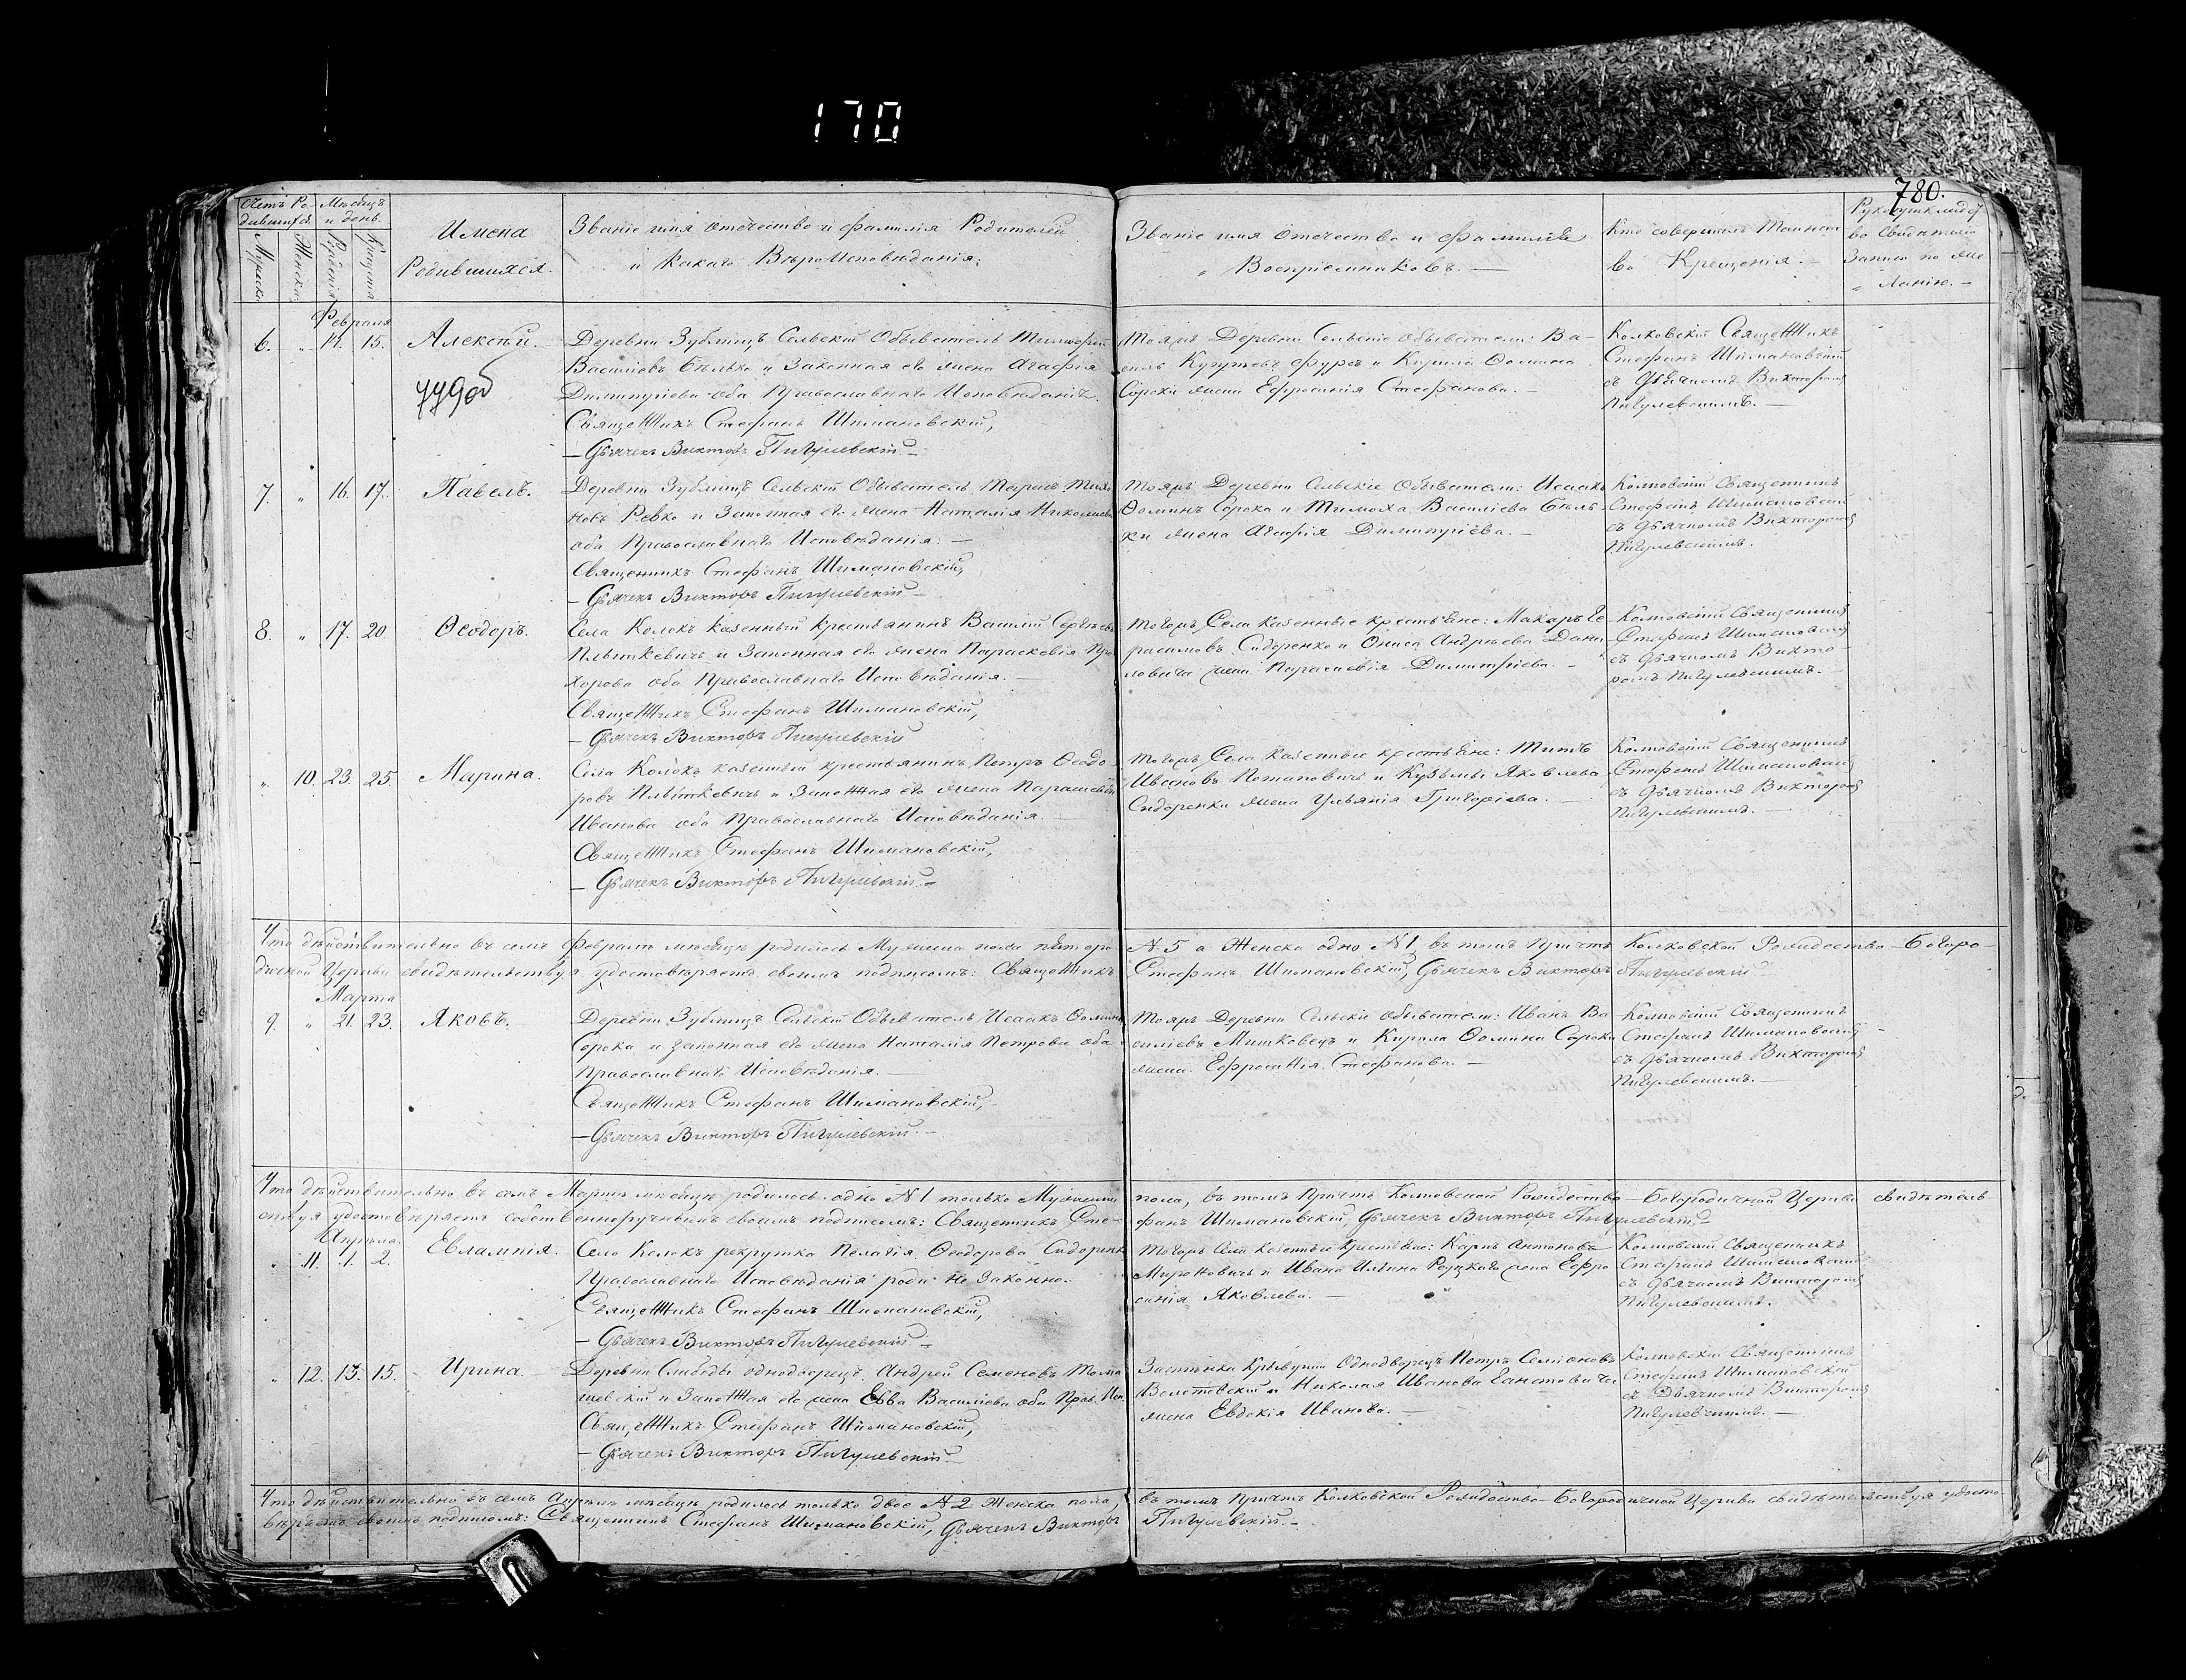 170
780.
Счетъ Ро-
дившихся.
Мѣсяцъ
и день.
Мужеска
Женска
Рожденія
Крещенія
Имена
Родившихся.
Званіе имя отечество и фамилія Родителей
и какого Вѣроисповѣданія.
Званіе имя отечество и фамилія
Воспріемниковъ. —
Кто совершалъ Таинст
во Крещенія. —
Рукоприкладст
во Свидѣтелей
Записи по же
ланію. —
Февраля
6. " 14. 15. Алексѣй.
779об
Деревни Зублищъ Сельскій Обыватель Тимофей
Василіевъ Бѣлько и Законная его жена Агафія
Димитріева оба Православнаго Исповѣданія.
Священникъ Стефанъ Шимановскій,
— Дьячекъ Викторъ Пигулевскій —
Тояжъ Деревни Сельскіе обыватели: Ва-
силь Фурсъ и Кирила Ѳомина
Сороки жена Ефросинія Стефанова. —
Колковскій Священникъ
Стефанъ Шимановскій
съ Дьячкомъ Викторомъ
Пигулевскимъ. —
7. " 16. 17. Павелъ.
Деревни Зублищъ Сельскій Обыватель
Ревко и Законная его жена Наталія Николаева
оба Православнаго Исповѣданія. —
Священникъ Стефанъ Шимановскій,
— Дьячекъ Викторъ Пигулевскій —
Тояжъ Деревни Сельскіе Обыватели: Исаакъ
Ѳоминъ Сорока и Тимоха Василіева Бѣль-
ки жена Агафія Димитріева. —
Колковскій Священникъ
Стефанъ Шимановскій
съ Дьячкомъ Викторомъ
Пигулевскимъ.
8. " 17. 20 Ѳеодоръ.
Села Колокъ казенный крестьянинъ Василій Сергѣевъ
Плѣткевичъ и Законная его жена Параскевія Про
хорова оба Православнаго Исповѣданія. —
Священникъ Стефанъ Шимановскій,
— Дьячекъ Викторъ Пигулевскій
Тогожъ Села казенные крестьяне: Макаръ Ге
расимовъ Сидоренко и Ониса Андрѣева Дани
ловича жена Параскевія Димитріева. —
Колковскій Священникъ
Стефанъ Шимановскій
съ Дьячкомъ Викто-
ромъ Пигулевскимъ. —
" 10. 23. 25. Марина.
Села Колокъ казенный крестьянинъ Петръ Ѳеодо-
ровъ Плѣткевичъ и Законная его жена Параскевія
Иванова оба Православнаго Исповѣданія. —
Священникъ Стефанъ Шимановскій,
— Дьячекъ Викторъ Пигулевскій —
Тогожъ Села казенные крестьяне: Титъ
Ивановъ Потаповичъ и Кузьмы Яковлева
Сидоренки жена Ульянія Григоріева. —
Колковскій Священникъ
Стефанъ Шимановскій
съ Дьячкомъ Викторомъ
Пигулевскимъ.
Что дѣйствительно въ семъ Февралѣ мѣсяцѣ родилось Мужеска пола
№ 5 а Женска одно № 1, въ томъ Причтъ Колковской Рождество-Богоро-
дичной Церкви свидѣтельствуя удостовѣряетъ своимъ подписомъ: Священникъ
Стефанъ Шимановскій, Дьячекъ Викторъ Пигулевскій
Марта
9. " 21. 23. Яковъ.
Деревни Зублищъ Сельскій Обыватель Исаакъ Ѳоминъ
Сорока и Законная его жена Наталія Петрова оба
Православнаго Исповѣданія. —
Священникъ Стефанъ Шимановскій,
— Дьячекъ Викторъ Пигулевскій. —
Тояжъ Деревни Сельскіе обыватели: Иванъ Ва
силіевъ Мишковецъ и Кирила Ѳомина Сороки
жена Ефросинія Стефанова. —
Колковскій Священникъ
Стефанъ Шимановскій
съ Дьячкомъ Викторомъ
Пигулевскимъ. —
Что дѣйствительно въ семъ Мартѣ мѣсяцѣ родилось одно № 1 только Мужеска
пола, въ томъ Причтъ Колковской Рождество-Богородичной Церкви свидѣтель-
ствуя удостовѣряетъ собственноручнымъ своимъ подписомъ: Священникъ Сте-
фанъ Шимановскій, Дьячекъ Викторъ Пигулевскій —
Апрѣля
" 11. 1. 2. Евлампія.
Села Колокъ рекрутка Пелагія Ѳеодорова Сидоренко
Православнаго Исповѣданія роди: не Законно.
Священникъ Стефанъ Шимановскій,
— Дьячекъ Викторъ Пигулевскій —
Тогожъ Села казенные крестьяне: Карпъ Антоновъ
Мироновичъ и Ивана Ильина Радцкаго жена Ефро
синія Яковлева. —
Колковскій Священникъ
Стефанъ Шимановскій
съ Дьячкомъ Викторомъ
Пигулевскимъ.
" 12. 13. 15. Ирина. —
Деревни Слободы однодворецъ Андрей Семеновъ Тома
шевскій и Законная его жена Евва Василіева оба Прав. Исп.
Священникъ Стефанъ Шимановскій,
— Дьячекъ Викторъ Пигулевскій —
Застѣнка Однодворецъ Петръ Семіоновъ
и Николая Иванова
жена Евдокія Иванова. —
Колковскій Священникъ
Стефанъ Шимановскій
съ Дьячкомъ Викторомъ
Пигулевскимъ. —
Что дѣйствительно въ семъ Апрѣлѣ мѣсяцѣ родилось только двое № 2 Женска пола,
въ томъ Причтъ Колковской Рождество-Богородичной Церкви свидѣтельствуя удосто-
вѣряетъ своимъ подписомъ: Священникъ Стефанъ Шимановскій, Дьячекъ Викторъ
Пигулевскій. —